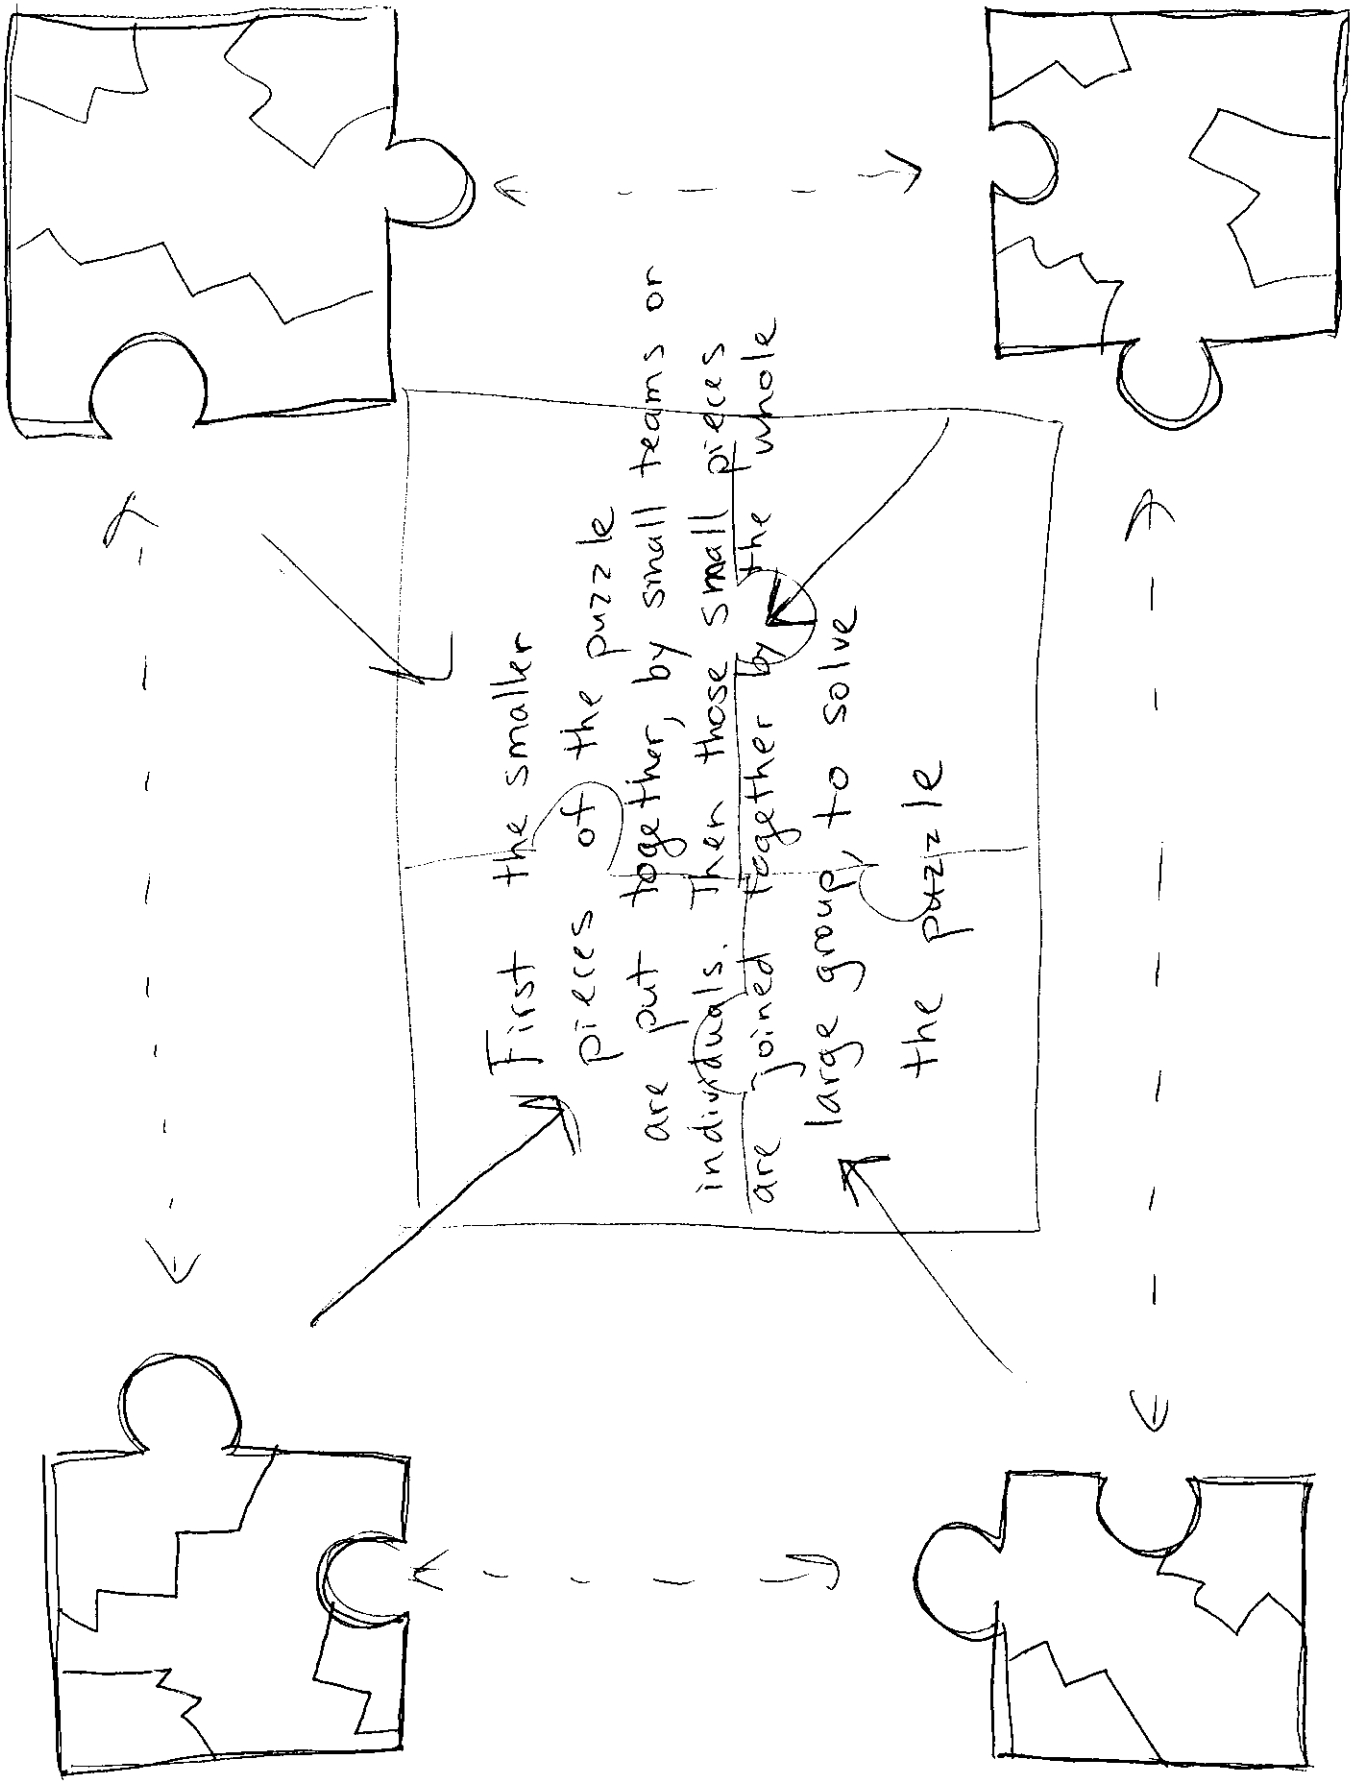 First the smaller
pieces of the puzzle
are put together, by small teams or
individuals. Then those small pieces
are joined together by the whole
large group, to solve
the puzzle